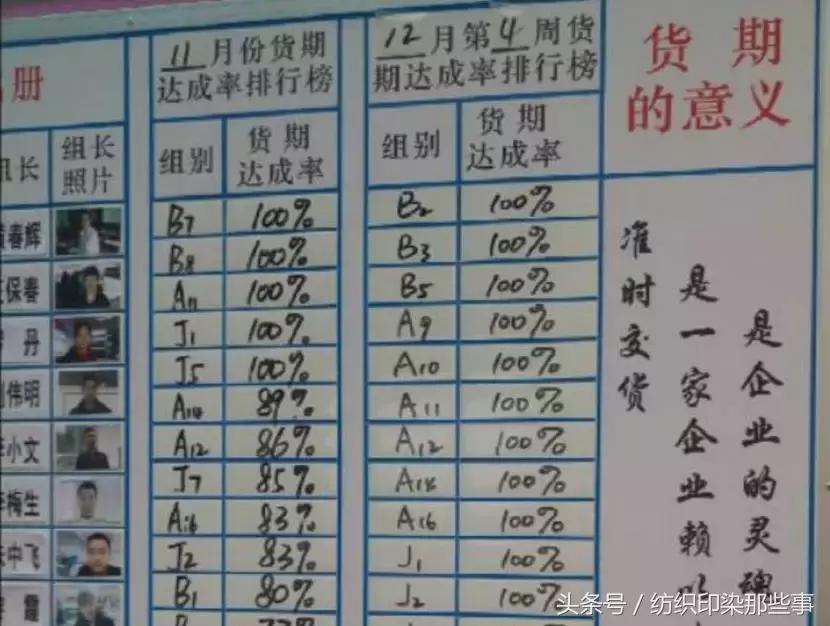 册
组长
组长
照片
春辉
保春
丹
伟明
小文
梅生
中飞
霞
11月份货期
达成率排行榜
组别 货期达成率
B7 100%
B8 100%
A11 100%
J1 100%
J5 100%
A14 89%
A12 86%
J7 85%
A16 83%
J2 83%
B1 80%
12月第4周货
期达成率排行榜
组别 货期达成率
B2 100%
B3 100%
B5 100%
A9 100%
A10 100%
A11 100%
A12 100%
A14 100%
A16 100%
J1 100%
J2 100%
货期
的意义
准时交货
是一家企业赖以
是企业的灵魂
头条号/纺织印染那些事